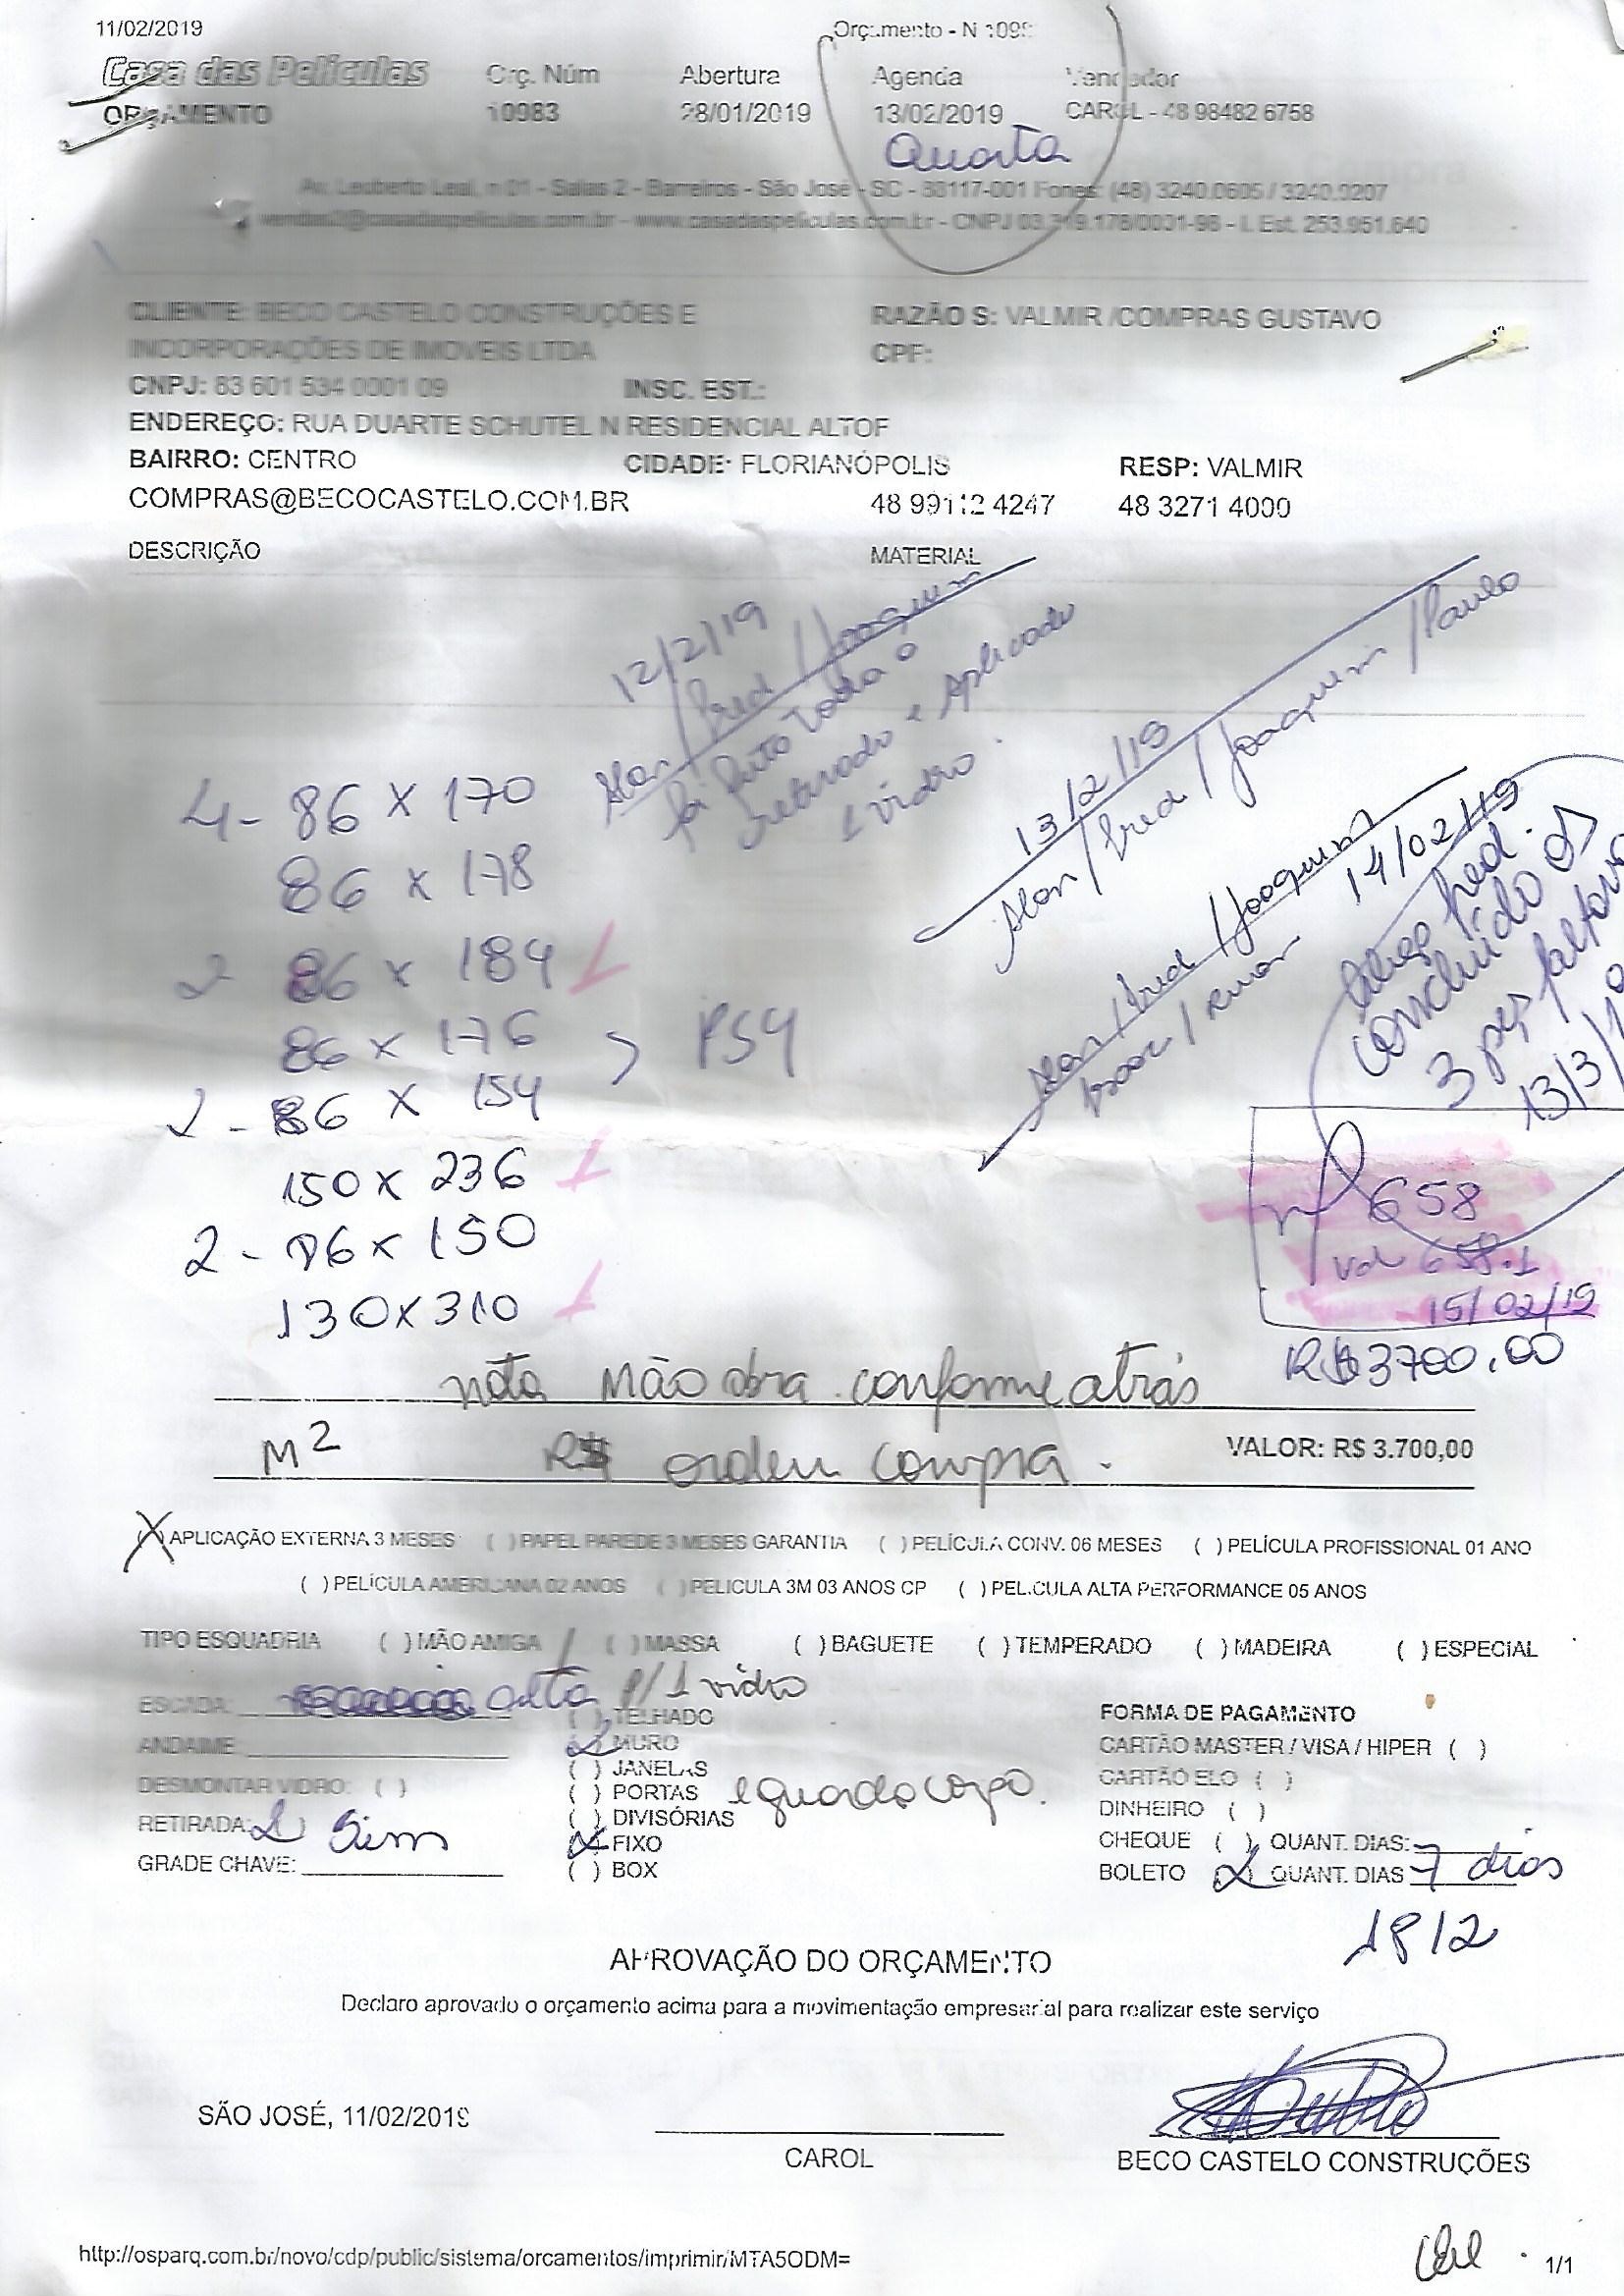 11/02/2019
Orçamento - N 1098
Casa das Películas Orç. Núm Abertura Agenda Vendedor
ORÇAMENTO 10983 28/01/2019 13/02/2019 CAROL - 48 98482 6758
Quarta
Av. Leoberto Leal, n 01 - Salas 2 - Barreiros - São José - SC - 88117-001 Fones: (48) 3240.0605 / 3240.0207
vendas3@casadaspeliculas.com.br - www.casadaspeliculas.com.br - CNPJ 03.319.176/0001-98 - I. Est. 253.951.640
CLIENTE: BECO CASTELO CONSTRUÇÕES E RAZÃO S: VALMIR /COMPRAS GUSTAVO
INCORPORAÇÕES DE IMOVEIS LTDA CPF:
CNPJ: 83 601 534 0001 09 INSC. EST.:
ENDEREÇO: RUA DUARTE SCHUTEL N RESIDENCIAL ALTOF
BAIRRO: CENTRO CIDADE: FLORIANÓPOLIS RESP: VALMIR
COMPRAS@BECOCASTELO.COM.BR 48 99112 4247 48 3271 4000
DESCRIÇÃO MATERIAL
12/2/19
Alan / Fred / Joaquim
foi feito todo o
retirado e Aplicado
1 vidro.
13/2/19
Alan / Fred / Joaquim / Paulo
14/02/19
Alan / Fred / Joaquim
concluído os
3 pçs
13/3/1
4- 86 x 170
86 x 178
2 86 x 184
86 x 176 > PS4
2 - 86 x 154
150 x 236
2 - 86 x 150
130 x 310
nf 658
vd 658.1
15/02/19
R$ 3700,00
nota Mão obra conforme atrás
M2 R$ ordem compra. VALOR: R$ 3.700,00
(X) APLICAÇÃO EXTERNA 3 MESES ( ) PAPEL PAREDE 3 MESES GARANTIA ( ) PELÍCULA CONV. 06 MESES ( ) PELÍCULA PROFISSIONAL 01 ANO
( ) PELÍCULA AMERICANA 02 ANOS ( ) PELICULA 3M 03 ANOS CP ( ) PELICULA ALTA PERFORMANCE 05 ANOS
TIPO ESQUADRIA ( ) MÃO AMIGA ( ) MASSA ( ) BAGUETE ( ) TEMPERADO ( ) MADEIRA ( ) ESPECIAL
ESCADA: alta p/ 1 vidro
( ) TELHADO
ANDAIME:
(X) MURO
( ) JANELAS
DESMONTAR VIDRO: ( )
( ) PORTAS e guarda corpo.
( ) DIVISÓRIAS
RETIRADA: (X) Sim
(X) FIXO
GRADE CHAVE:
( ) BOX
FORMA DE PAGAMENTO
CARTÃO MASTER / VISA / HIPER ( )
CARTÃO ELO ( )
DINHEIRO ( )
CHEQUE ( ) QUANT. DIAS:
BOLETO (X) QUANT. DIAS 7 dias
18/2
APROVAÇÃO DO ORÇAMENTO
Declaro aprovado o orçamento acima para a movimentação empresarial para realizar este serviço
SÃO JOSÉ, 11/02/2019
CAROL BECO CASTELO CONSTRUÇÕES
http://osparq.com.br/novo/cdp/public/sistema/orcamentos/imprimir/MTA5ODM= 1/1